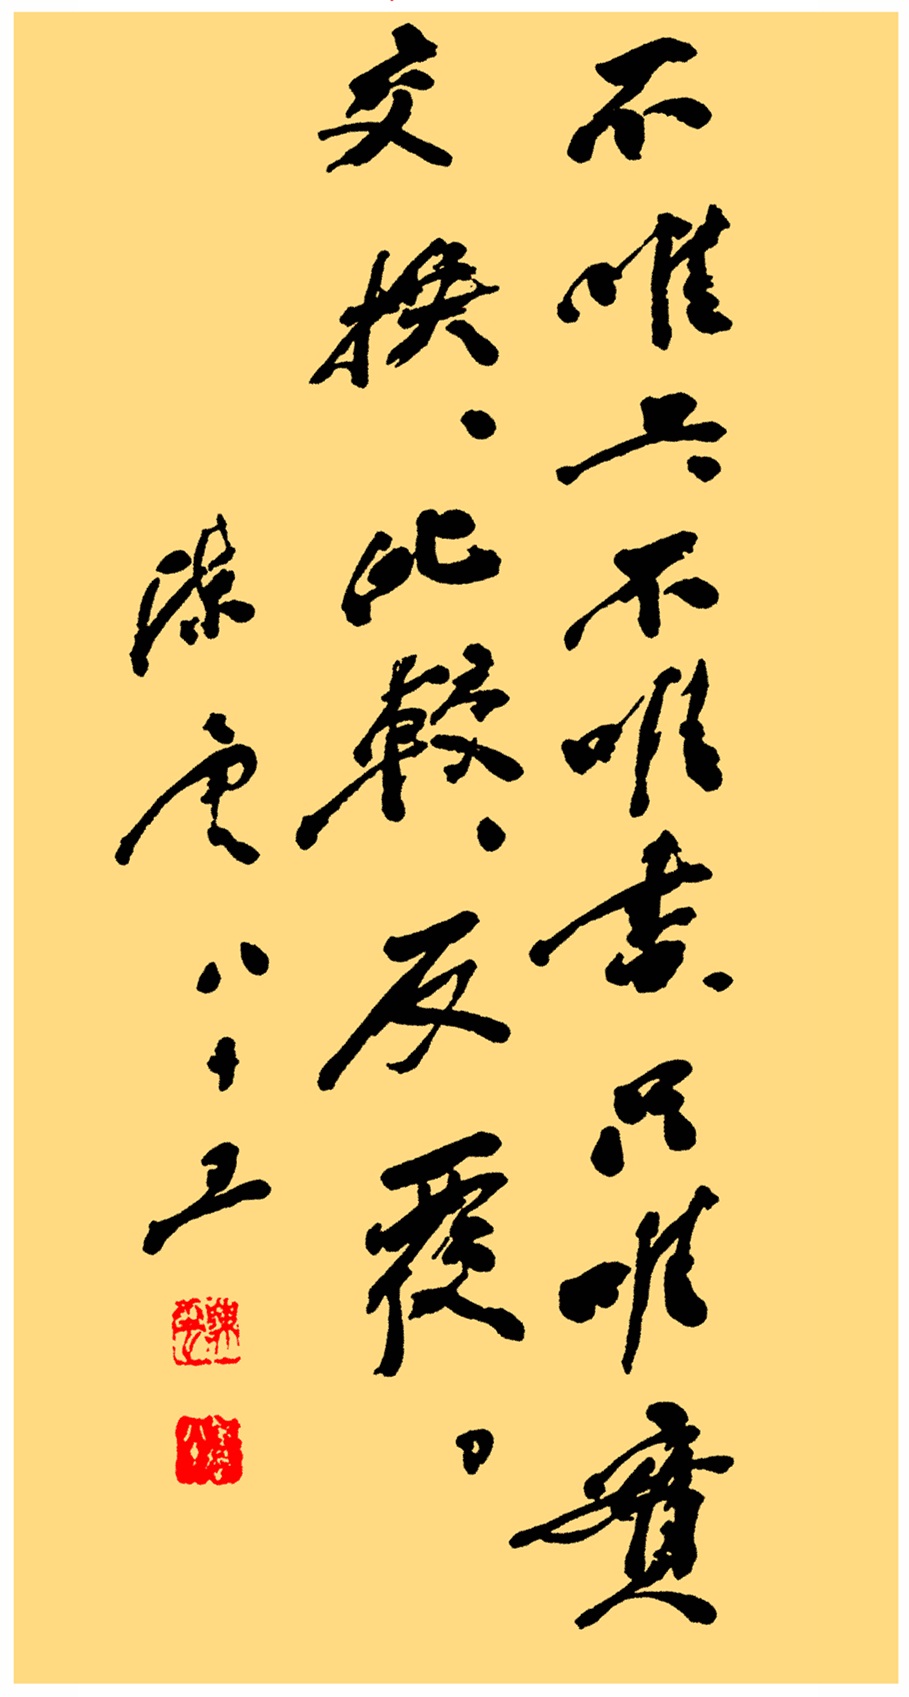 不唯上不唯書、只唯實
交換、比較、反覆。
陳雲 八十五
陳雲